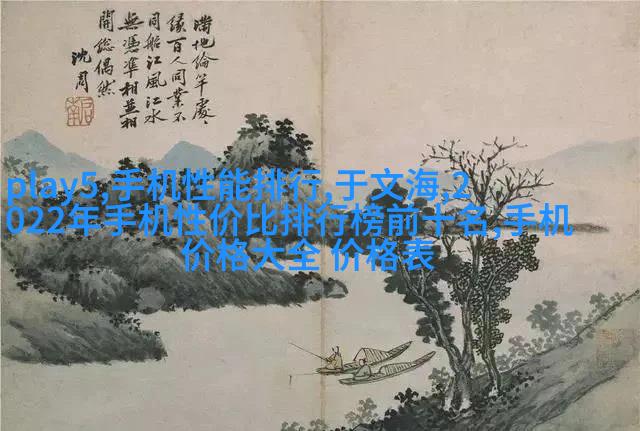 滿地綸竿處〻
緣百人同業不
同船江風江水
無憑準相並相
開總偶然
沈周
play5,手机性能排行,于文海,2
022年手机性价比排行榜前十名,手机
价格大全 价格表